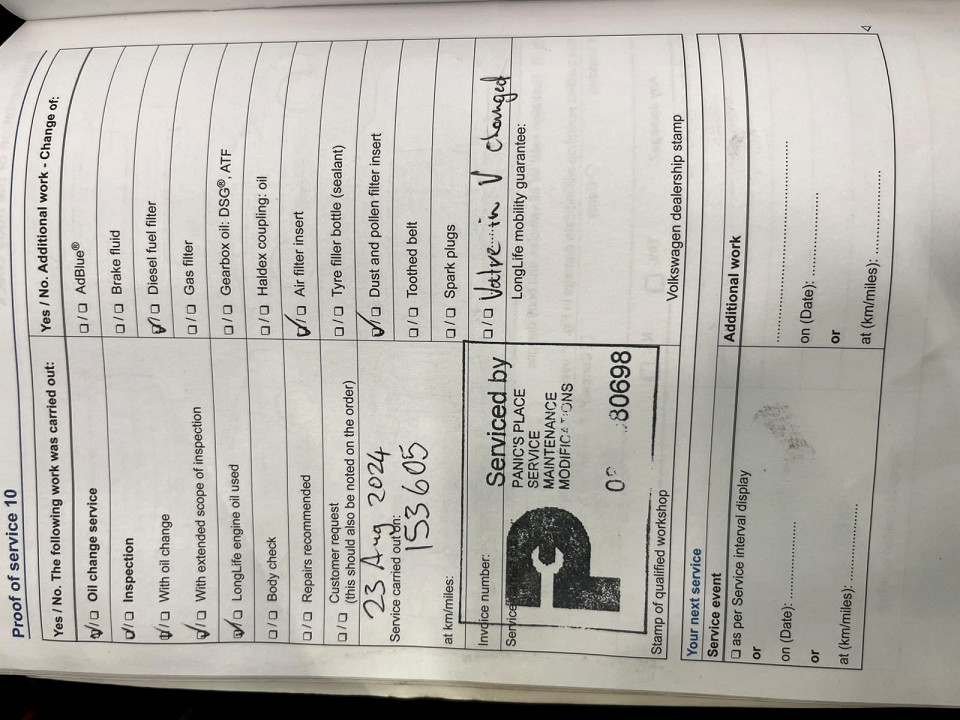 Proof of service 10
Yes / No. The following work was carried out:
☑/☐ Oil change service
☑/☐ Inspection
☑/☐ With oil change
☑/☐ With extended scope of inspection
☑/☐ LongLife engine oil used
☐/☐ Body check
☐/☐ Repairs recommended
☐/☐ Customer request
(this should also be noted on the order)
23 Aug 2024
Service carried out on:
153605
at km/miles:
Invoice number:
Service
Serviced by
PANIC'S PLACE
SERVICE
MAINTENANCE
MODIFICATIONS
80698
Stamp of qualified workshop
Yes / No. Additional work - Change of:
☐/☐ AdBlue®
☐/☐ Brake fluid
☑/☐ Diesel fuel filter
☐/☐ Gas filter
☐/☐ Gearbox oil: DSG®, ATF
☐/☐ Haldex coupling: oil
☑/☐ Air filter insert
☐/☐ Tyre filler bottle (sealant)
☑/☐ Dust and pollen filter insert
☐/☐ Toothed belt
☐/☐ Spark plugs
☐/☐ Valve in V changed
LongLife mobility guarantee:
Volkswagen dealership stamp
Your next service
Service event
☐ as per Service interval display
or
on (Date):
or
at (km/miles):
Additional work
on (Date):
or
at (km/miles):